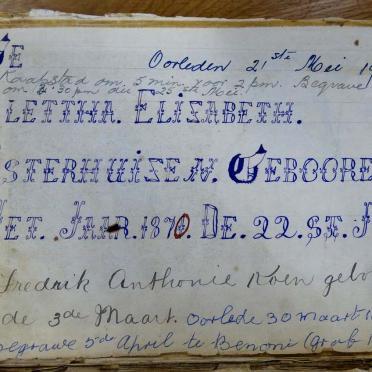 Oorleden 21ste Mei 19
Kaapstad om 5 min. voor 2 pm. Begrawe
om 4:30 pm die 25ste Mei.
LETTHA. ELIZABETH.
STERHUIZEN. GEBOORE
ET. JAAR. 1870. DE. 22. ST. J
Fredrik Anthonie Koen gebo
de 3de Maart. Oorlede 30 Maart 1
Begrawe 5de April te Benoni (Graf 1